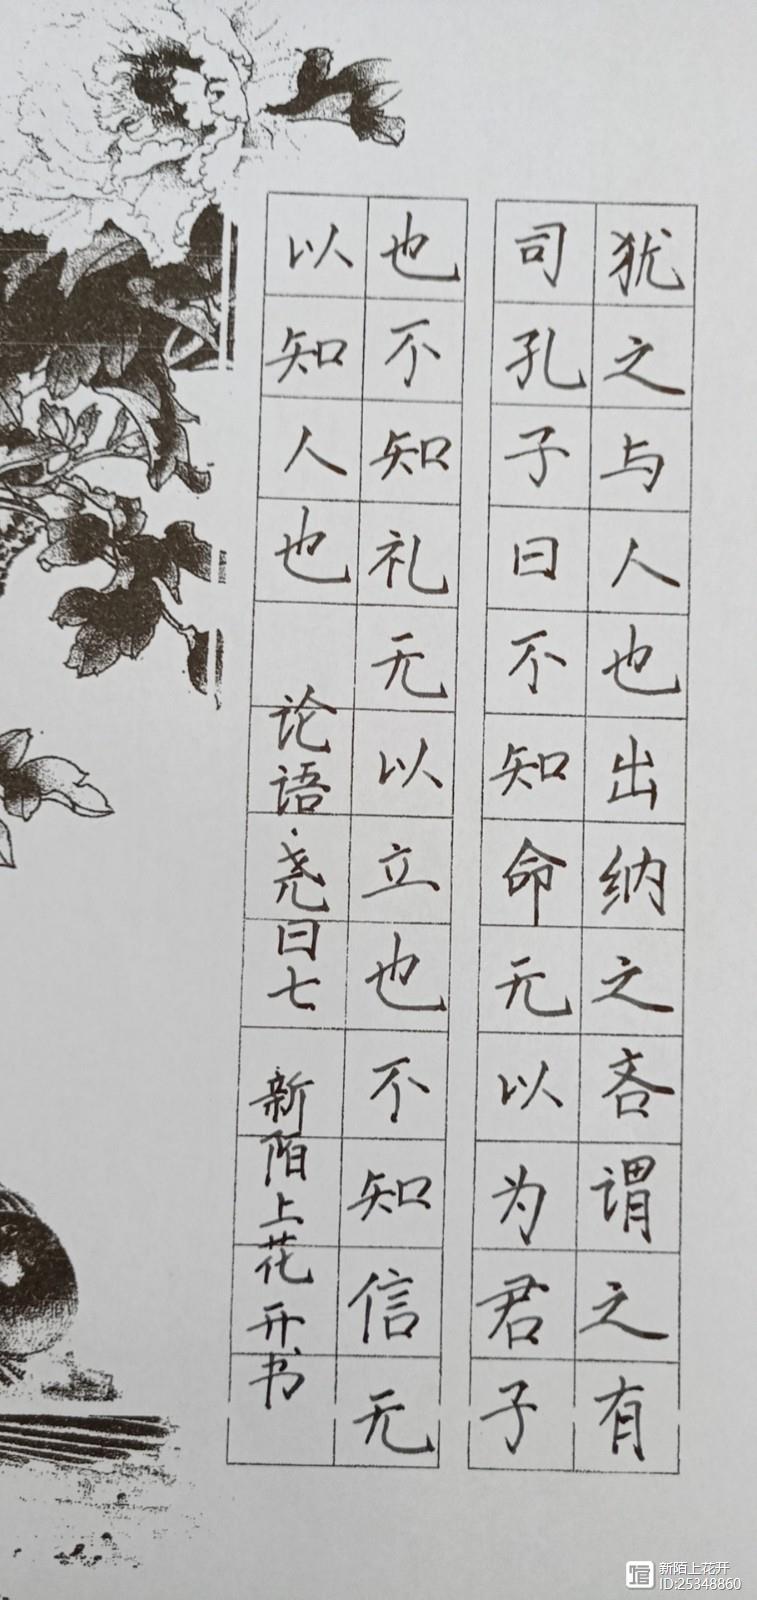 犹之与人也出纳之吝谓之有
司孔子曰不知命无以为君子
也不知礼无以立也不知信无
以知人也
论语·尧曰七
新陌上花开书
新陌上花开
ID:25348860